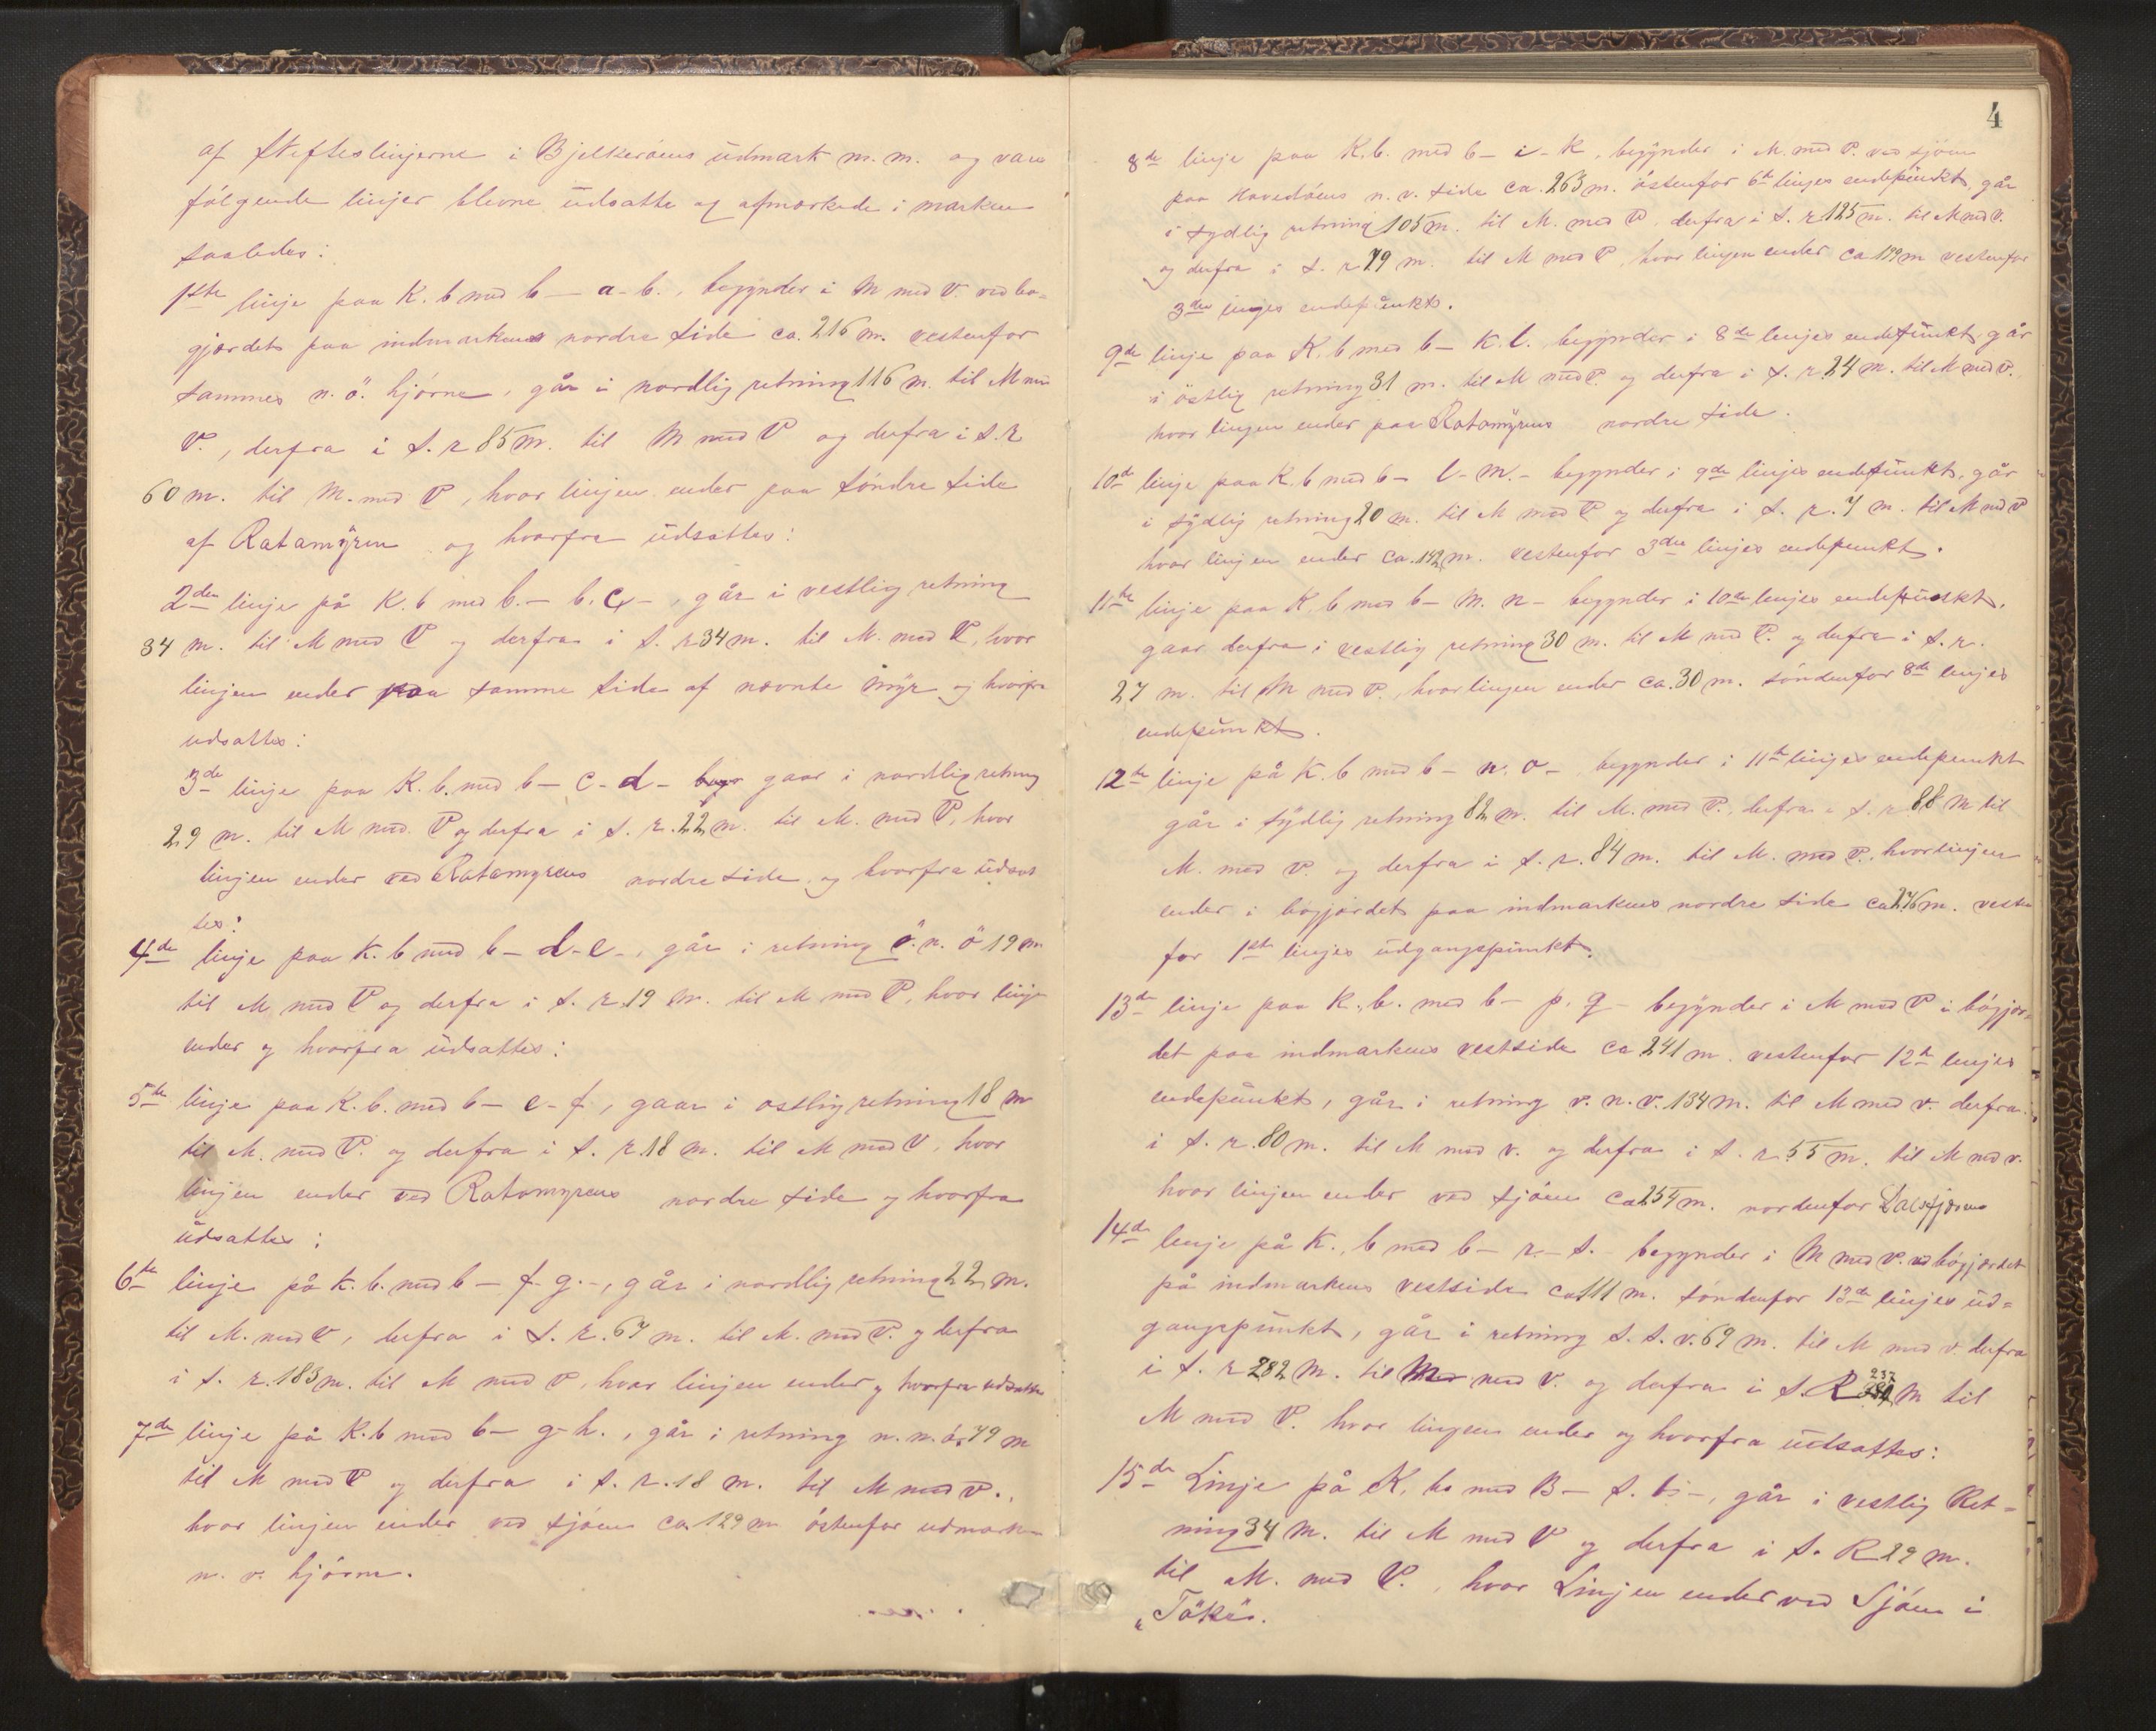 af skifteslinjerne i Bjelkeröens üdmark m.m. og vare
fölgende linjer blevne üdsatte og afmærkede i marken
saaledes:
1ste linje paa K. b med b — a - b., begynder i M med V. ved bø-
gjærdet paa indmarkens nordre side ca. 216 m. vestenfor
sammes n. ö. hjörne, går i nordlig retning 116 m. til M med
V., derfra i s. r 85 m. til M med V og derfra i s. r
60 m. til M. med V, hvor linjen ender paa söndre side
af Ratamÿren og hvorfra üdsattes:
2den linje på K. b med b. — b. c -, går i vestlig retning
34 m. til M med V og derfra i s. r 34 m. til M. med V, hvor
linjen ender paa samme side af nævnte mÿr og hvorfra
udsattes:
3de linje paa K. b. med b — c - d - gaar i nordlig retning
29 m. til M med V og derfra i s. r. 22 m. til M. med V, hvor
linjen ender ved Ratamyrens nordre side og hvorfra üdsat
tes:
4de linje paa K. b med b — d - e -, går i retning ö. n. ö 19 m
til M med V og derfra i s. r. 19 m. til M med V, hvor linje
ender og hvorfra üdsattes:
5te linje paa K. b. med b — e - f, gaar i ostlig retning 18 m
til M. med V. og derfra i s. r. 18 m. til M med V, hvor
linjen ender ved Ratamyrens nordre side og hvorfra
üdsattes:
6te linje på K. b. med b — f - g. -, går i nordlig retning 22 m.
til M. med V, derfra i s. r. 67 m. til M. med V. og derfra
i s. r. 183 m. til M med V, hvor linjen ender og hvorfra udsattes
7de linje på K. b med b — g - h., går i retning n. n. ö. 79 m
til M med V og derfra i s. r. 18 m. til M med V.,
hvor linjen ender ved sjöen ca. 129 m östenfor udmarkens
n. v. hjörne.
4
8de linje paa K. b. med b — i - k, begÿnder i M. med V. ved sjöen
paa Hovedöens n. v. side ca. 263 m. östenfor 6te linjes endepünkt, går
i sydlig retning 105 m. til M. med V, derfra i s. r 125 m. til M med V.
og derfra i s. r 79 m. til M med V, hvor linjen ender ca 199 m vestenfor
3die linjes endepünkt.
9de linje paa K. b med b — k. l. begÿnder i 8de linjes endepünkt, går
i östlig retning 31 m. til M med V. og derfra i s. r. 24 m. til M med V.
hvor linjen ender paa Ratamÿrens nordre side.
10de linje paa K. b med b — l - m. - begynder i 9de linjes endepünkt, går
i sÿdlig retning 20 m. til M med V og derfra i s. r. 7 m. til M med V
hvor linjen ender ca. 142 m. vestenfor 3die linjes endepunkt.
11te linje paa K. b med b — m. n — begynder i 10de linjes endepünkt,
gaar derfra i vestlig retning 30 m. til M med V. og derfra i s. r.
27 m. til M med V., hvor linjen ender ca. 30 m. söndenfor 8de linjes
endepünkt.
12te linje på K. b med b — n. o —, begynder i 11te linjes endepunkt
går i sÿdlig retning 82 m. til M. med V., derfra i s. r 88 m til
M. med V. og derfra i s. r. 84 m. til M. med V. hvor linjen
ender i bögjærdet paa indmarkens nordre side ca 276 m. vesten
for 1ste linjes üdgangspünkt.
13de linje paa K. b. med b — p. q — begÿnder i M med V i bögjær-
det paa indmarkens vestside ca 241 m. vestenfor 12te linjes
endepünkt, går i retning v. n. v. 134 m. til M med v. derfra
i s. r. 80 m. til M med v. og derfra i s. r. 55 m. til M med v.
hvor linjen ender ved sjöen ca 254 m. nordenfor
14de linje på K. b med b — r. — s. — begynder i M med V. ved bögjærdet
på indmarkens vestside ca 111 m. söndenfor 13de linjes üd-
gangspünkt, går i retning s. s. v. 69 m. til M med v. derfra
i s. r 282 m. til M med V. og derfra i s. R 237 m til
M med V. hvor linjen ender og hvorfra üdsattes:
15de Linje på K. b. med B — s. t —, går i vestlig Ret-
ning 34 m. til M med V og derfra i s. R 29 m.
til M. med V., hvor Linjen ender ved Sjöen i